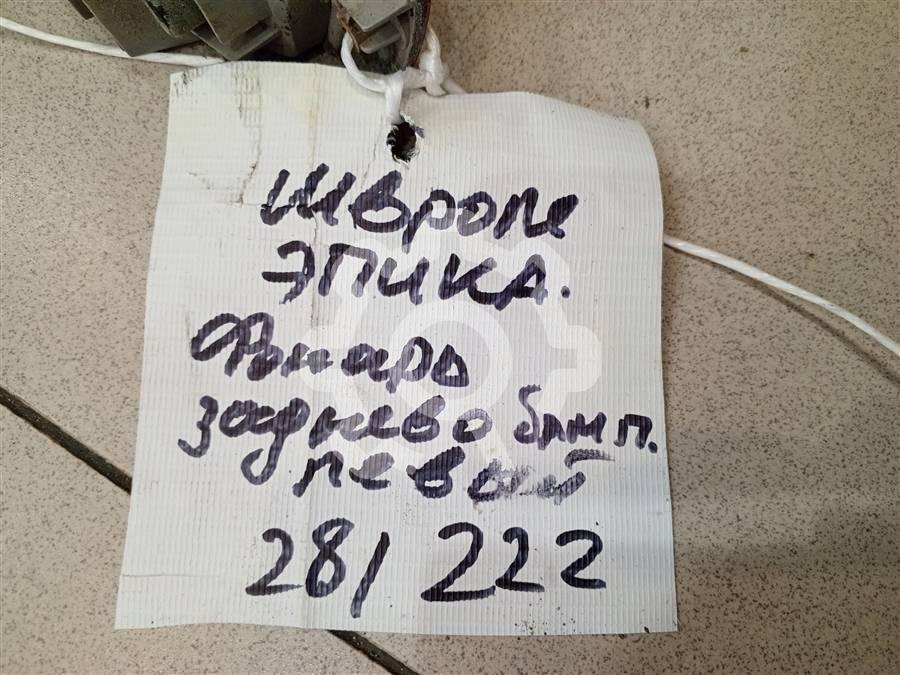 Шевроле
ЭПИКА.
Фонарь
заднево бамп.
левый
28/222